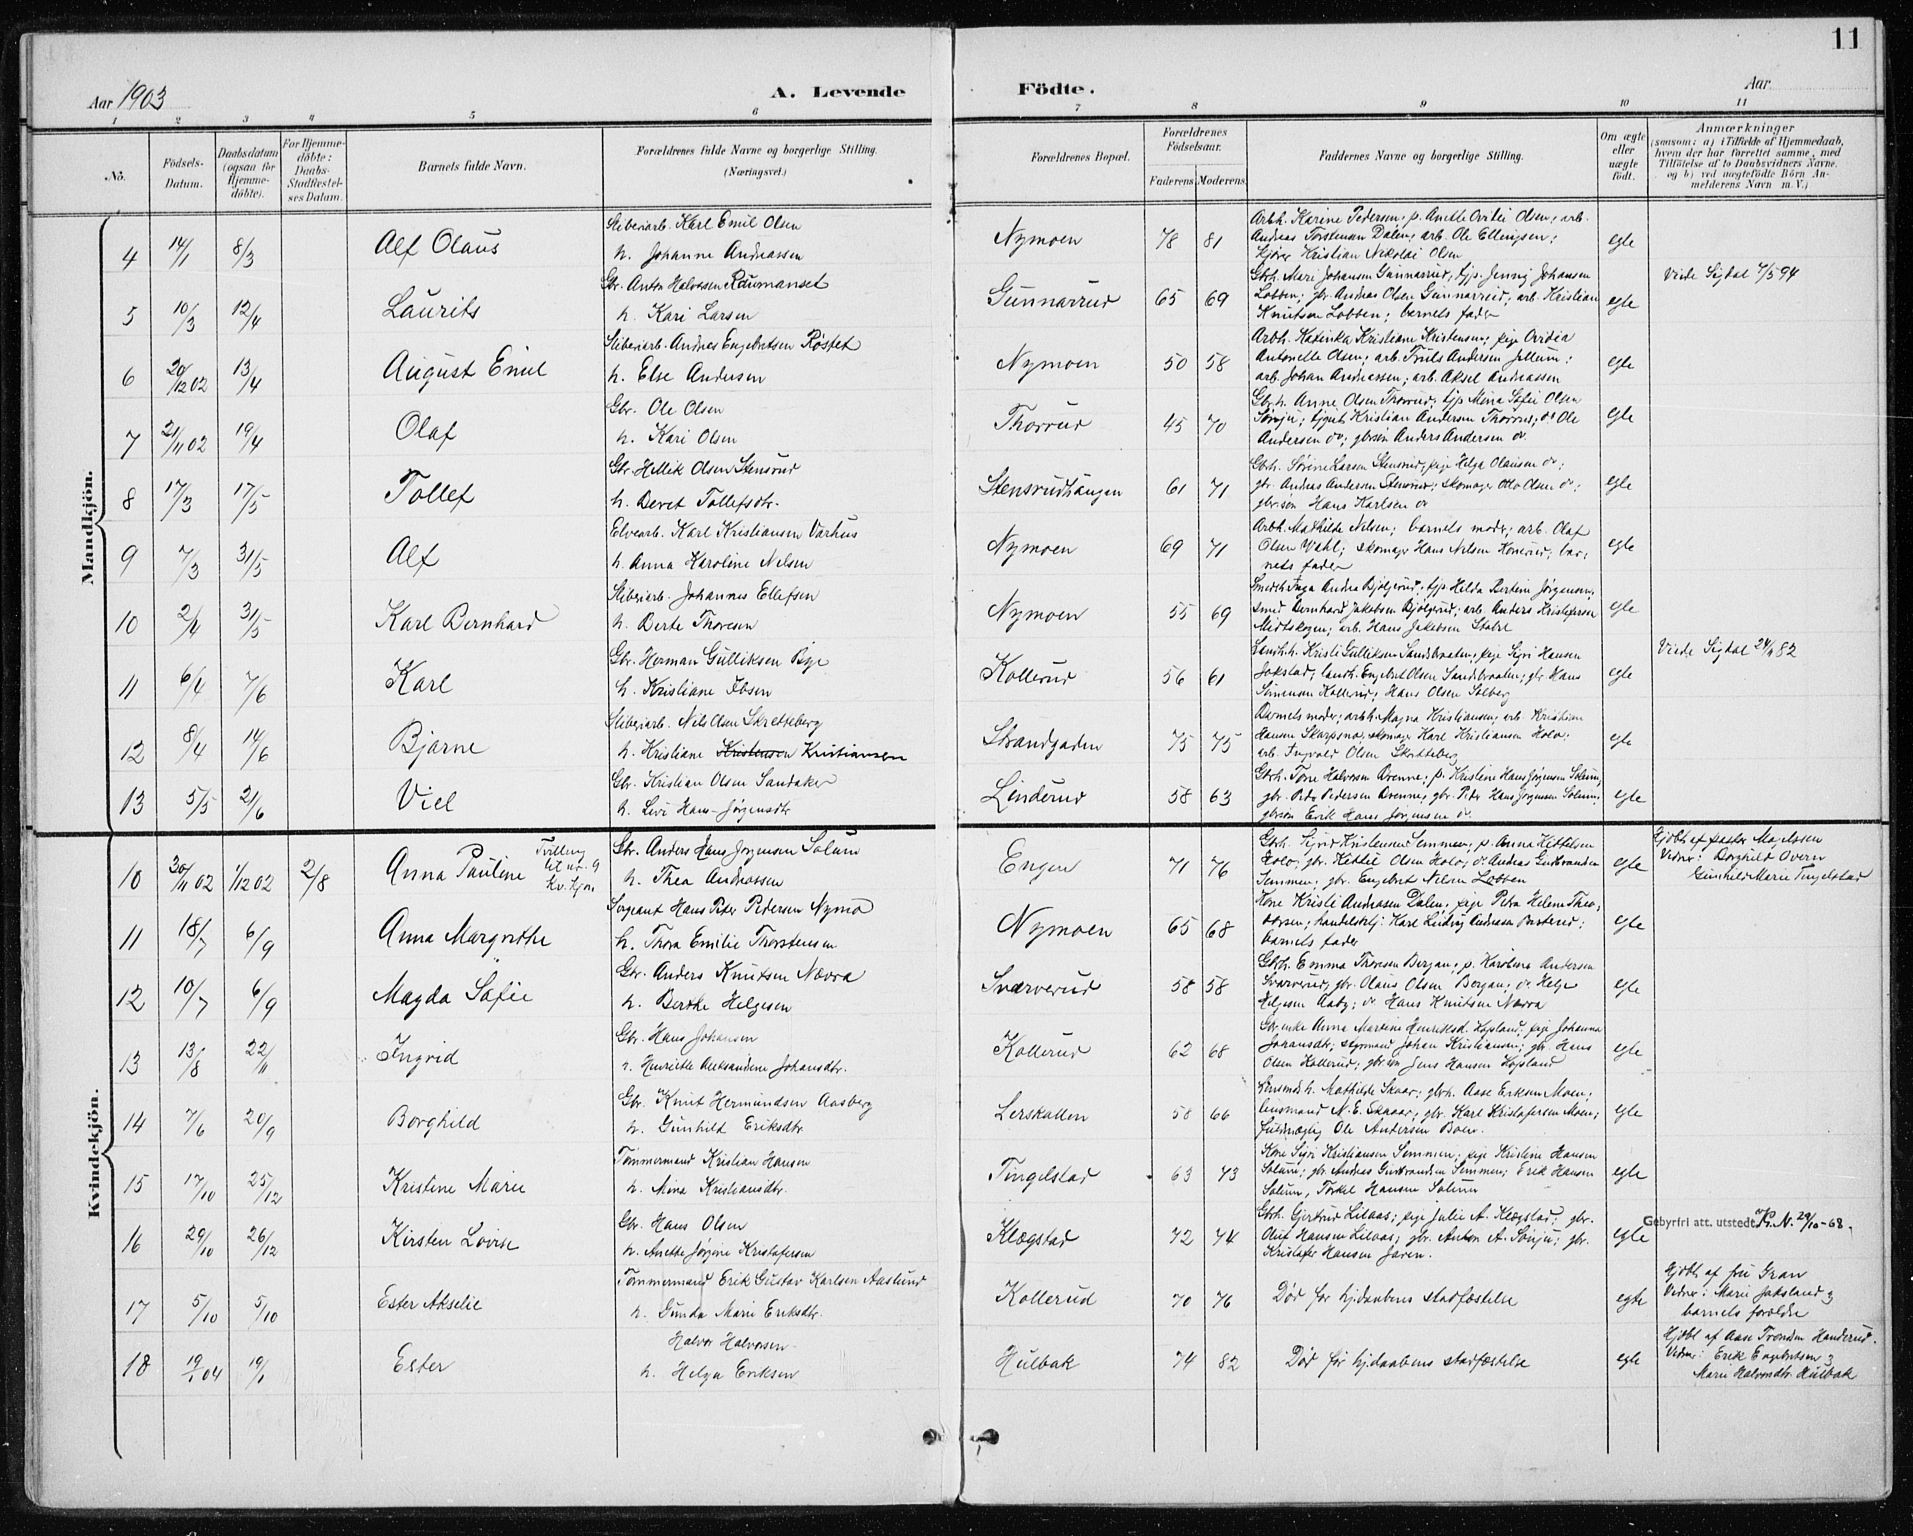 11
Aar 1903
A. Levende
Födte.
Aar
1 2 3 4 5 6 7 8 9 10 11
No.
Födsels-Datum.
Daabsdatum (ogsaa for Hjemme-döbte).
For Hjemme-döbte: Daabs-Stadfæstel-ses Datum.
Barnets fulde Navn.
Forældrenes fulde Navne og borgerlige Stilling. (Næringsvei.)
Forældrenes Bopæl.
Forældrenes Födselsaar.
Faderens Moderens
Faddernes Navne og borgerlige Stilling.
Om ægte eller uægte födt.
Anmærkninger
(saasom: a) i Tilfælde af Hjemmedaab,
hvem der har forrettet samme, med
Tilföielse af to Daabsvidners Navne,
og b) ved uægtefödte Börn An-
melderens Navn m. V.)
Mandkjön.
4 14/1 8/3 Alf Olaus
Sliberiarb. Karl Emil Olsen
h. Johanne Andreassen
Nymoen 78 81
Arbh. Karine Pedersen, p. Anette Ovidei Olsen, arb.
Andreas Torstensen Dalen, arb. Ole Ellingsen;
Kjører Kristian Nikolai Olsen
egte
5 10/3 12/4 Laurits
Gbr. Anton Halvorsen Raumanset
h. Kari Larsen
Gunnarrud 65 69
Gbrh. Mari Johansen Gunnarrud, tjp. Jenny Johansen
Lobben; gbr. Andreas Olsen Gunnarrud, arb. Kristian
Knutsen Lobben; barnets fader
egte
Viede Sigdal 7/5 94
6 20/12 02 13/4 August Emil
Sliberiarb. Andreas Engebretsen Røstet
h. Else Andersen
Nymoen 50 58
Arbh. Katinka Kristiane Kristensen; pige Ovidia
Antonette Olsen; arb. Truls Andersen Jellum;
arb. Johan Andreassen; arb. Aksel Andreassen
egte
7 21/11 02 19/4 Olaf
Gbr. Ole Olsen
h. Kari Olsen
Thorrud 45 70
Gbrh. Anne Olsen Thorrud; tjp Mina Sofie Olsen
Sønju; tjgut Kristian Andersen Thorrud; do Ole
Andersen do; gbrsøn Anders Andersen do
egte
8 17/3 17/5 Tollef
Gbr. Hellik Olsen Stensrud
h. Beret Tollefsdtr.
Stensrudhaugen 61 71
Gbrh. Sørine Larsen Stensrud, pige Helga Olausen do;
gbr. Andreas Andersen Stensrud; skomager Otto Olsen do;
gbrsøn Hans Karlsen do
egte
9 7/3 31/5 Alf
Elvearb. Karl Kristiansen Varhus
h. Anna Karoline Nilsen
Nymoen 69 71
Arbh. Mathilde Nilsen; barnets moder; arb. Olaf
Olsen Wahl; skomager Hans Nilsen Konerud, bar-
nets fader
egte
10 2/4 31/5 Karl Bernhard
Sliberiarb. Johannes Ellefsen
h. Berte Thoresen
Nymoen 55 69
Smedh. Inga Andrea Bjølgerud, tjp Helda Bertine Jørgensen,
smed Bernhard Jakobsen Bjølgerud; arb. Anders Kristofersen
Midtskogen; arb. Hans Jakobsen Stabil
egte
11 6/4 7/6 Karl
Gbr. Herman Gulliksen Bye
h. Kristiane Ibsen
Kollerud 56 61
Landh. Kristi Gulliksen Sandsbraaten, pige Sigri Hansen
Jokstad, landh. Engebret Olsen Sandsbraaten; gbr Hans
Simensen Kollerud, Hans Olsen Solberg
egte
Viede Sigdal 24/11 82
12 8/4 14/6 Bjarne
Sliberiarb. Nils Olsen Skretteberg
h. Kristiane Kristensen Kristiansen
Strandgaden 75 75
Barnets moder; arbh. Magna Kristiansen, arb. Kristian
Hansen Skarpsno, skomager Karl Kristiansen Holo;
arb. Ingvald Olsen Skretteberg
egte
13 5/5 21/6 Viel
Gbr. Kristian Olsen Sandaker
h. Livi Hans-Jørgensdtr
Linderud 58 63
Gbrh. Tone Halvorsen Brenne; p. Kristine Hans Jørgensen Solum,
gbr. Peder Pedersen Brenne, gbr. Peder Hans Jørgensen Solum;
gbrsøn Erik Hans Jørgensen do
egte
Kvindekjön.
10 30/11 02 1/12 02 2/8 Anna Pauline
Tvilling til nr. 9 Kv. kjøn
Gbr. Anders Hans Jørgensen Solum
h. Thea Andreassen
Engen 71 76
Gbrh. Sigrid Kristensen Semmen; p. Anna Kittelsen
Holo; gbr. Kittil Olsen Holo; do Andreas Gudbrandsen
Semmen; gbr. Engebret Nilsen Lobben
egte
Hjdøbt af Maelssen
Vidner: Borghild Overn
Gunhild Marie Tingelstad
11 18/7 6/9 Anna Margrethe
Sergeant Hans Peter Pedersen Nymo
h. Thora Emilie Thorstensen
Nymoen 65 68
Kone Kristi Andreasen Dalen, pige Petra Helene Theo-
dorsen; handelsbtj: Karl Ludvig Andreasen;
barnets fader
egte
12 10/7 6/9 Magda Sofie
Gbr. Anders Knutsen Nævra
h. Berthe Helgesen
Sværverud 58 58
Gbrh. Emma Thoresen Bergan; p. Karoline Andersen
Sværverud, gbr. Olaus Olsen Bergan; do Helge
Helgesen Aaby; do Hans Knutsen Nævra
egte
13 13/8 22/11 Ingrid
Gbr. Hans Johansen
h. Henriette Aleksandrine Johansdtr.
Kollerud 62 68
Gbr enke Anna Martine Henriksd. Hogsland; pige Johanna
Johansdtr; styrmand Johan Kristiansen; gbr. Hans
Olsen Kollerud; gbrsøn Jens Hansen Hogsland
egte
14 7/6 20/9 Borghild
Gbr. Knut Hermundsen Aasberg
h. Gunhild Eriksdtr
Lerskallen 58 66
Lensmandsh. Mathilde Skaar; gbrh. Aase Eriksen Moen;
lensmand N. E. Skaar; gbr. Karl Kristofersen Moen;
fuldmægtig Ole Andersen Boen.
egte
15 17/10 25/12 Kristine Marie
Tømmermand Kristian Hansen
h. Mina Kristiansdtr.
Tingelstad 63 73
Kone Sigri Kristiansen Semmen; pige Kristine Hansen
Solum; gbr. Andreas Gudbrandsen Semmen; Erik Hansen
Solum, Torkel Hansen Solum
egte
16 29/10 26/12 Kirsten Lovise
Gbr. Hans Olsen
h. Anette Jørgine Kristofersen
Klægstad 72 74
Gbrh. Gjertrud Lilaas; pige Julie A. Klægstad; gbr.
Oluf Hansen Lilaas; gbr. Anton A. Sønju; gbr.
Kristofer Hansen Jaren.
egte
Gebyrfri att. utstedt 29/10-68.
17 5/10 5/10 Ester Akselie
Tømmermand Erik Gustav Karlsen Aaslund
h. Gunda Marie Eriksdtr.
Kollerud 70 76
Død før hjdaabens stadfæstelse
egte
Hjdøbt af fru Gran
Vidner: Marie Joksland og
barnets forældre
18 19/1 04 19/1 Ester
Halvor Halvorsen
h. Helga Eriksen
Hulbak 74 82
Død før hjdaabens stadfæstelse
egte
Hjdøbt af Aase Tronsen Handerud.
Vidner: Erik Engebretsen og
Marie Halvorsdtr. Hulbak